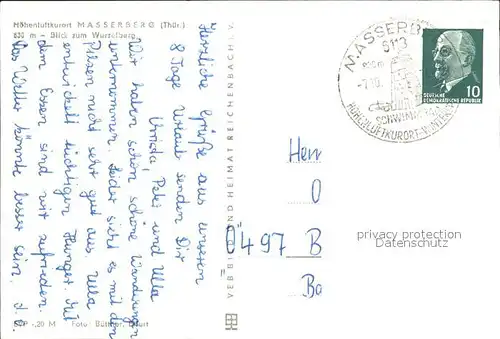 Höhenluftkurort MASSERBERG (Thür.)
830 m - Blick zum Wurzelberg
Herzliche Grüße aus unseren
8 Tage Urlaub senden Dir
Christa, Peter und Ulla
Wir haben schon schöne Wanderungen
unternommen. Leider sieht es mit den
Pilzen nicht sehr gut aus. Ulla
entwickelt tüchtigen Hunger. Mit
dem Essen sind wir zufrieden.
Das Wetter könnte besser sein. d.O.
-,20 M Foto: Büttner, Erfurt
VEB BILD UND HEIMAT REICHENBACH I. V.
MASSERB
6113
830 m
-7.10.
SCHWIMM
HÖHENLUFTKURORT
DEUTSCHE
DEMOKRATISCHE REPUBLIK
10
Herr
O
0497 B
Ba
privacy protection
Datenschutz